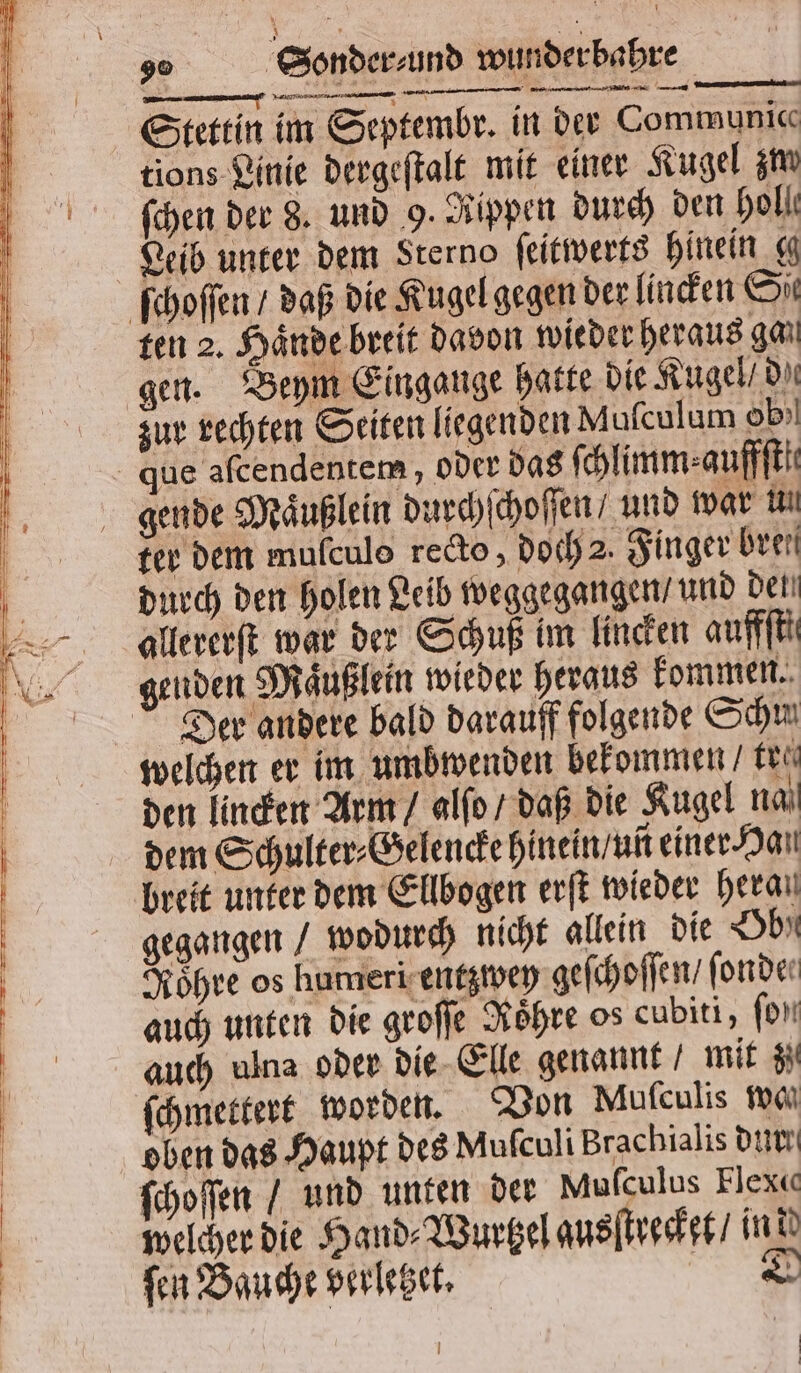 90 Sonder⸗und wunderbahre
Stettin im Septembr. in der Communic
tions Linie dergeſtalt mit einer Kugel zw
ſchen der 8. und 9. Rippen durch den holl
Leib unter dem Sterno ſeitwerts hinein g
ſchoſſen / daß die Kugel gegen der lincken S
ten 2. Haͤnde breit davon wieder heraus gan
gen. Beym Eingange hatte die Kugel/ d
zur rechten Seiten liegenden Muſculum obl
que aſcendentem, oder das ſchlimm⸗auffſt
gende Maͤußlein durchſchoſſen/ und war un
ter dem muſculo recto, doch 2. Finger brei
durch den holen Leib weggegangen/ und den
allererſt war der Schuß im lincken auffſti
genden Maͤußlein wieder heraus kommen.
Der andere bald darauff folgende Schu
welchen er im umbwenden bekommen / tr
den lincken Arm / alſo / daß die Kugel na
dem Schulter⸗Gelencke hinein/uñ einer Han
breit unter dem Ellbogen erſt wieder herau
gegangen / wodurch nicht allein die Ob
Roͤhre os humeri entzwey geſchoſſen/ ſonde
auch unten die groſſe Roͤhre os cubiti, ſo
auch ulna oder die Elle genannt / mit z
ſchmettert worden. Von Muſculis wa
oben das Haupt des Muſculi Brachialis dur
ſchoſſen / und unten der Muſculus Flex
welcher die Hand⸗Wurtzel ausſtrecket/ in d
ſen Bauche verletzet.
D